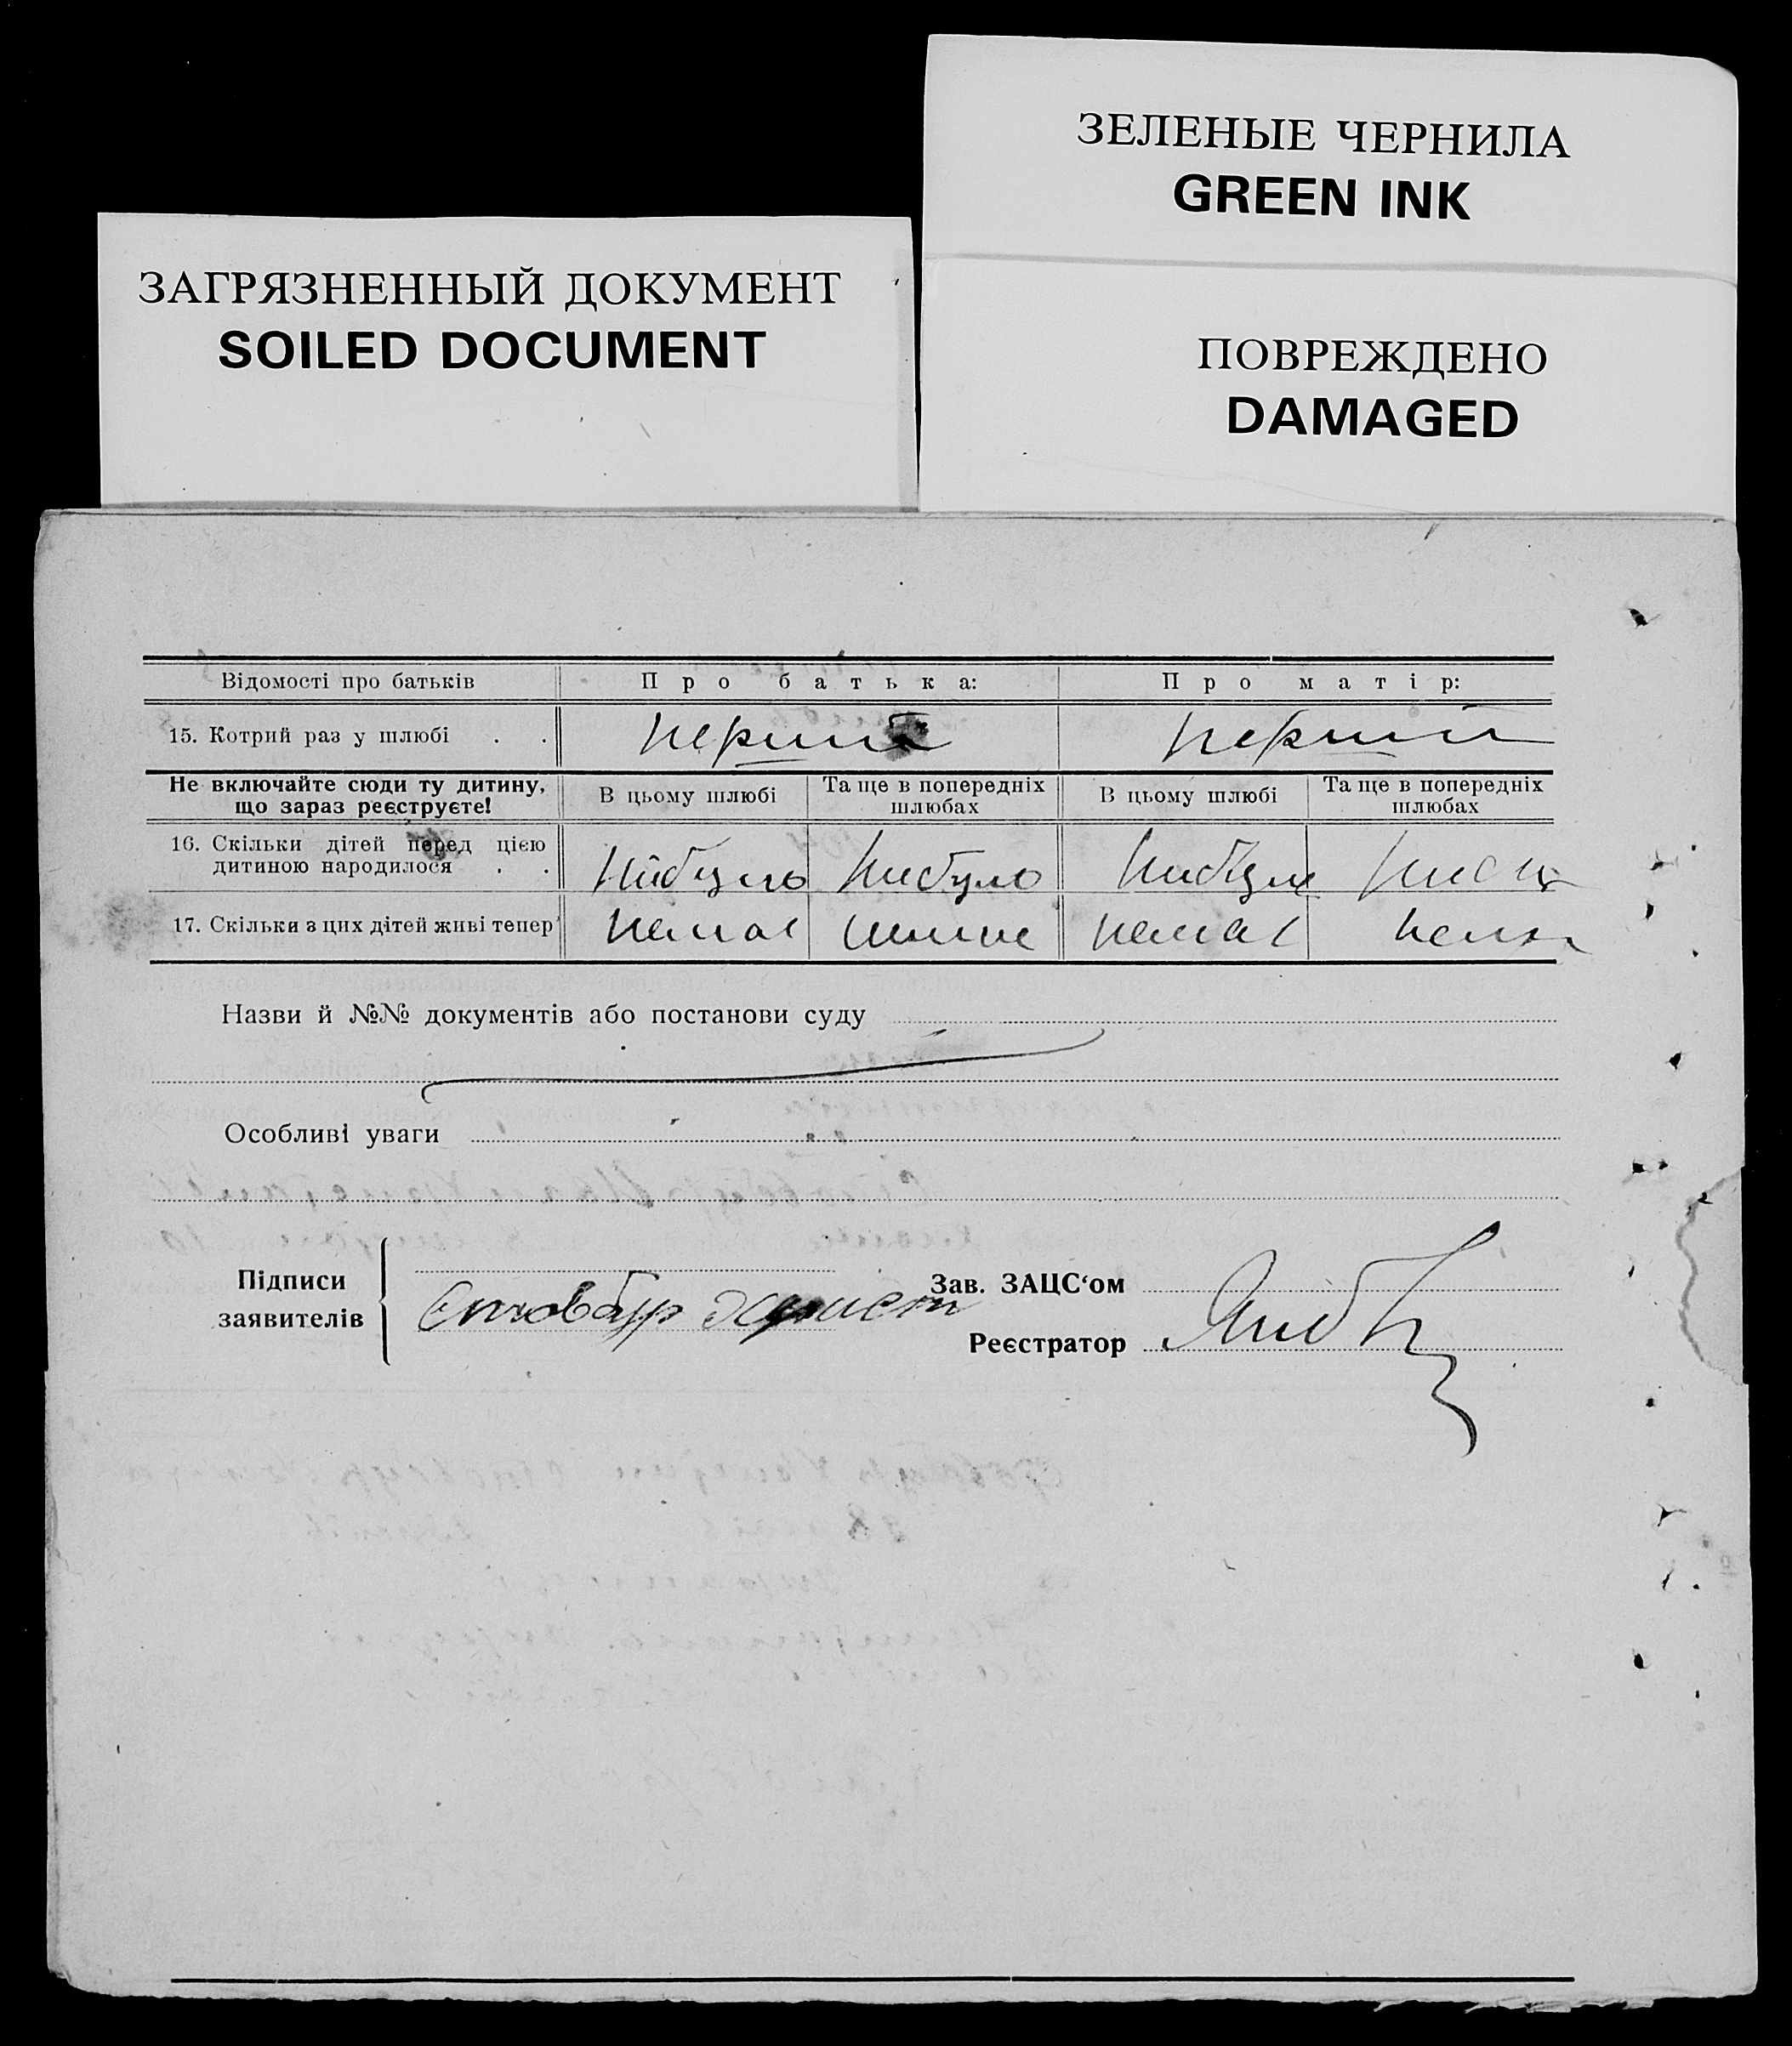 ЗЕЛЕНЫЕ ЧЕРНИЛА
GREEN INK
ЗАГРЯЗНЕННЫЙ ДОКУМЕНТ
SOILED DOCUMENT
ПОВРЕЖДЕНО
DAMAGED
Відомості про батьків Про батька: Про матір:
15. Котрий раз у шлюбі . . перший перший
Не включайте сюди ту дитину, що зараз реєструєте!
В цьому шлюбі Та ще в попередніх шлюбах В цьому шлюбі Та ще в попередніх шлюбах
16. Скільки дітей перед цією
дитиною народилося . . небуло небуло небуло
17. Скільки з цих дітей живі тепер немає немає
Назви й №№ документів або постанови суду
Особливі уваги
Підписи
заявителів
Зав. ЗАЦС‘ом
Реєстратор